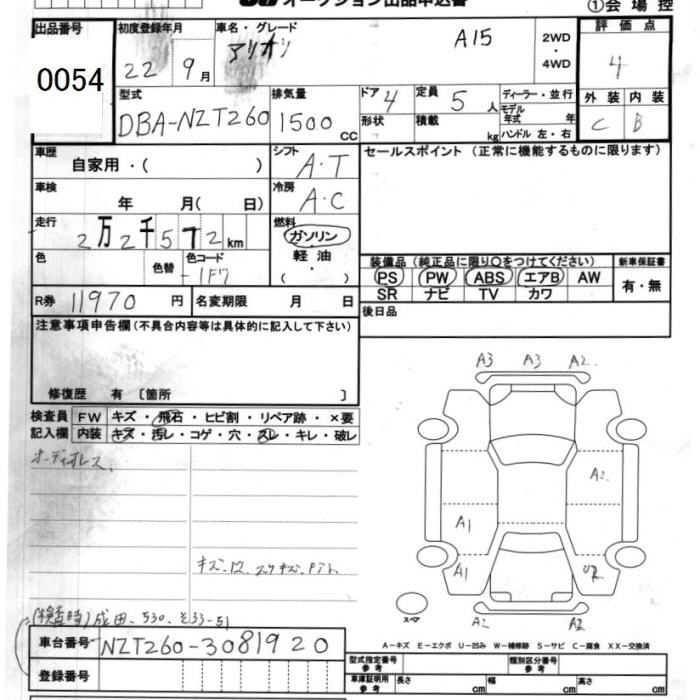 オークション出品申込書 ①会場控
出品番号 初度登録年月 車名・グレード 2WD・4WD 評価点
0054 22 9月 アリオン A15 4
型式 排気量 ドア 定員 ディーラー・並行 外装 内装
DBA-NZT260 1500 CC 4 5 人 モデル年式 年 C B
形状 積載 kg ハンドル 左・右
車歴 シフト セールスポイント (正常に機能するものに限ります)
自家用・( ) A・T
車検 冷房
年 月( 日) A・C
走行 燃料
2万2千572km ガソリン
色 色替 色コード 軽油・( )
1F7
装備品 (純正品に限り○をつけてください) 新車保証書
PS PW ABS エアB AW 有・無
SR ナビ TV カワ
R券 11970 円 名変期限 月 日 後日品
注意事項申告欄(不具合内容等は具体的に記入して下さい)
修復歴 有 〔箇所 〕
検査員 FW キズ・飛石・ヒビ割・リペア跡・×要
記入欄 内装 キズ・汚レ・コゲ・穴・スレ・キレ・破レ
オーディオレス
A3 A3 A2
A2
A1
A1 U2
スペア A2 A2
(検査時)成田.530.そ33-51
車台番号 NZT260-3081920
A-キズ E-エクボ U-凹み W-補修跡 S-サビ C-腐食 XX-交換済
登録番号
型式指定番号 参考 類別区分番号 参考
車庫証明用 参考 長さ cm 幅 cm 高さ cm